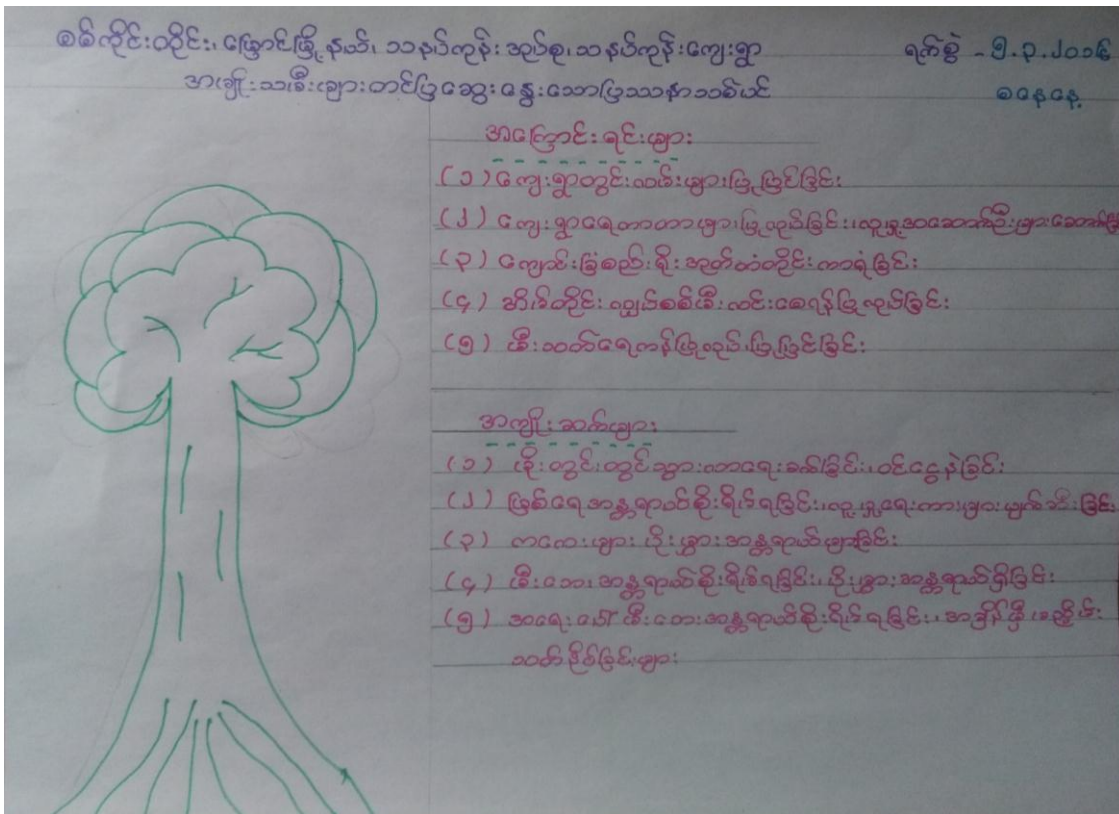 စစ်ကိုင်းတိုင်း၊ မြောင်မြို့နယ်၊ သနပ်ကုန်းအုပ်စု၊ သနပ်ကုန်းကျေးရွာ ရက်စွဲ - ၅.၃.၂၀၁၆
အမျိုးသမီးများတင်ပြဆွေးနွေးသောပြဿနာသစ်ပင် စနေနေ့
အကြောင်းရင်းများ
(၁) ကျေးရွာတွင်းလမ်းများပြုပြင်ခြင်း
(၂) ကျေးရွာရေတာတာများပြုလုပ်ခြင်း၊လူမှုအဆောက်ဦးများဆောက်
(၃) ကျောင်းခြံစည်းရိုးအုတ်တံတိုင်းကာရံခြင်း
(၄) အိမ်တိုင်းလျှပ်စစ်မီးလင်းစေရန်ပြုလုပ်ခြင်း
(၅) မီးသတ်ရေကန်ပြုလုပ်၊ပြုပြင်ခြင်း
အကျိုးဆက်များ
(၁) မိုးတွင်းတွင်သွားလာရေးခက်ခြင်း၊ဝင်ငွေနဲခြင်း
(၂) မြစ်ရေအန္တရာယ်စိုးရိမ်ရခြင်း၊လူမှုရေးကားများပျက်စီးခြင်း
(၃) ကလေးများ ခိုးမှုအန္တရာယ်များခြင်း
(၄) မီးဘေးအန္တရာယ်စိုးရိမ်ရခြင်း၊ ခိုးမှု အန္တရာယ်ရှိခြင်း
(၅) အရေးပေါ်မီးဘေးအန္တရာယ်စိုးရိမ်ရခြင်း၊အချိန်မှီမငြှိမ်း
သတ်နိုင်ခြင်းများ